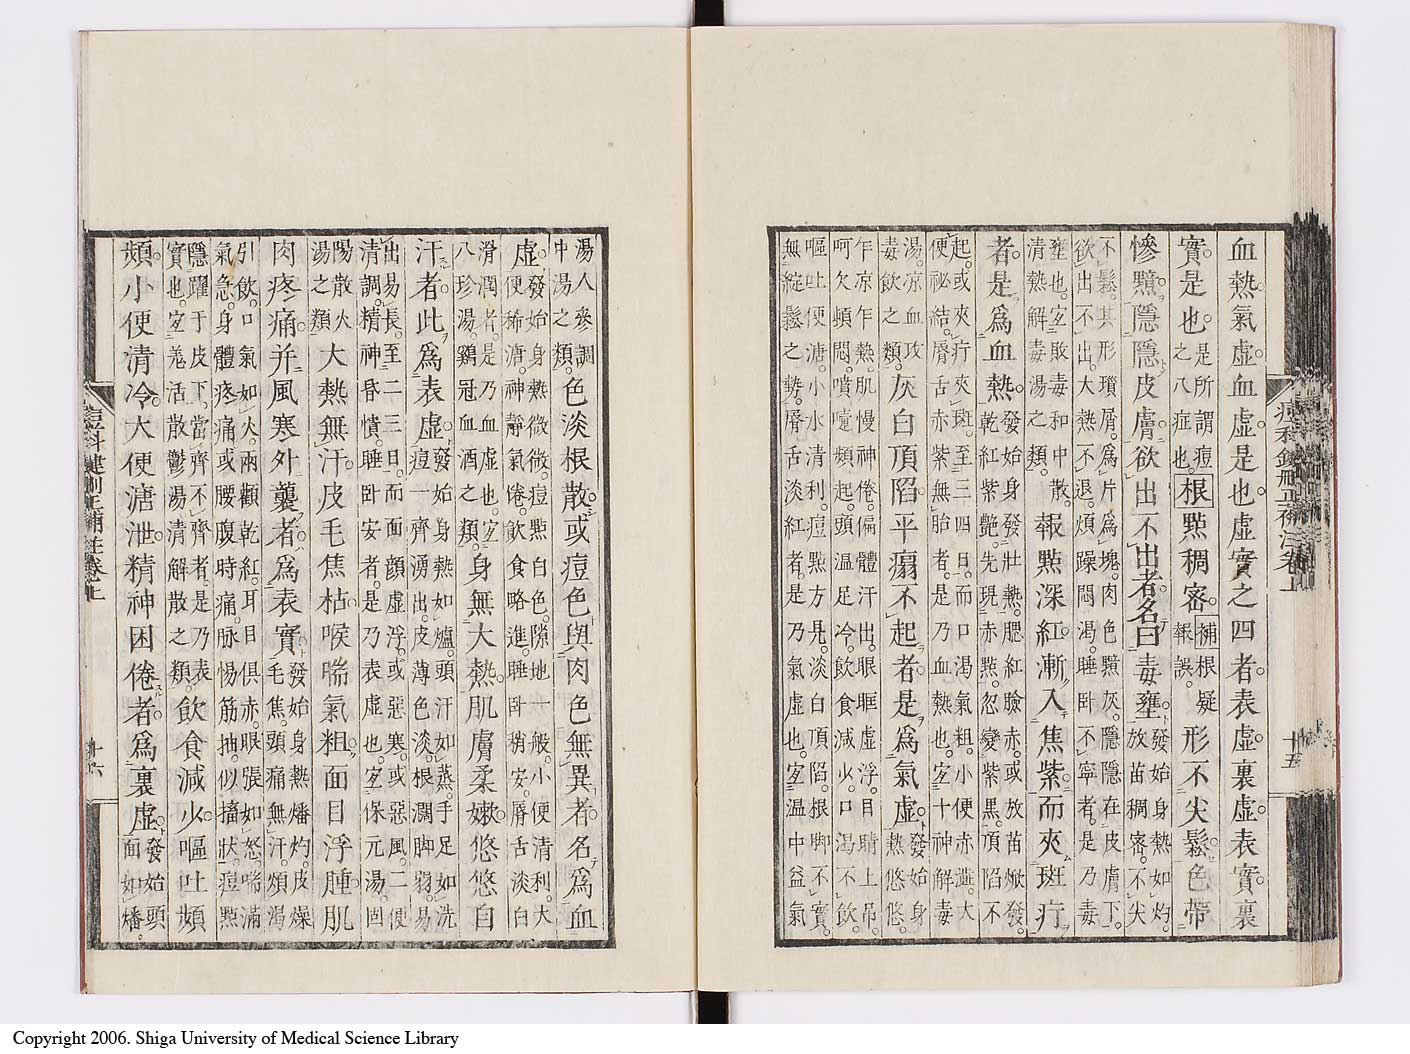 血熱氣虛血虛是也虛實之四者表虛裏虛表實裏
實是也是所謂痘之八症也根點稠密補根疑報誤形不尖鬆色帶
慘黯隱隱皮膚欲出不出者名曰毒壅發始身熱如灼放苗稠密不尖
不鬆其形瑣屑爲片爲塊肉色黯灰隱隱在皮膚下
欲出不出大熱不退煩躁悶渴睡卧不寧者是乃毒
壅也宜敗毒和中散清熱解毒湯之類報點深紅漸入焦紫而夾斑疔
者是爲血熱發始身發壯熱腮紅臉赤或放苗焮發乾紅紫艷先現赤點忽變紫黑頂陷不
起或夾疔夾斑至三四日而口渴氣粗小便赤澁大
便祕結脣舌赤紫無胎者是乃血熱也宜十神解毒
湯凉血攻毒飲之類灰白頂陷平塌不起者是爲氣虛發始身熱悠悠
乍凉乍熱肌慢神倦偏體汗出眼眶虛浮目睛上吊
呵欠頓悶噴嚏頻起頭温足冷飲食減少口渴不飲
嘔吐便溏小水清利痘點方見淡白頂陷根脚不實
無綻鬆之勢脣舌淡紅者是乃氣虛也宜温中益氣
痘科鍵刪正補注卷上 十五
湯人參調中湯之類色淡根散或痘色與肉色無異者名爲血
虛發始身熱微微痘點白色隙地一般小便清利大便稀溏神靜氣倦飲食略進睡卧稍安脣舌淡白
滑潤者是乃血虛也宜八珍湯鷄冠血酒之類身無大熱肌膚柔嫩悠悠自
汗者此爲表虛發始身熱如爐頭汗如蒸手足如洗痘一齊湧出皮薄色淡根濶脚弱易
出易長至二三日而面顔虛浮或惡寒或惡風二便
清調精神昏憒睡卧安者是乃表虛也宜保元湯固
陽散火湯之類大熱無汗皮毛焦枯喉喘氣粗面目浮腫肌
肉疼痛并風寒外襲者爲表實發始身熱燔灼皮燥毛焦頭痛無汗煩渴
引飲口氣如火兩顴乾紅耳目俱赤眼張如怒喘滿
氣急身體疼痛或腰腹時痛脉惕筋抽似搐狀痘點
隱躍于皮下當齊不齊者是乃表實也宜羌活散鬱湯清解散之類飲食減少嘔吐頻
頻小便清冷大便溏泄精神困倦者爲裏虛發始頭面如燔
痘科鍵刪正補注卷上 十六
Copyright 2006. Shiga University of Medical Science Library